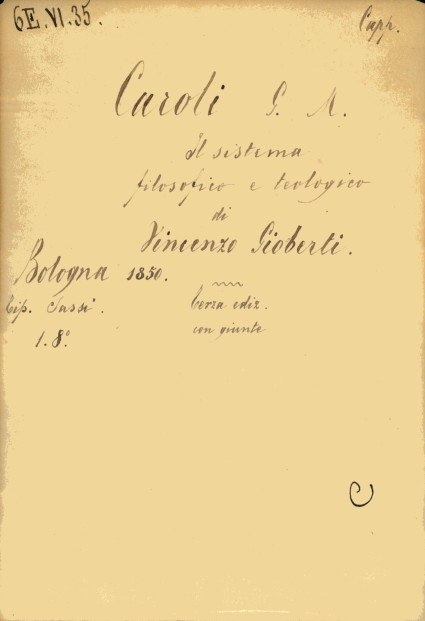 6E.VI.35.
Capp.
Caroli G. M.
Il sistema
filosofico e teologico
di
Vincenzo Gioberti.
Bologna 1850.
terza ediz.
Tip. Sassi.
con giunte
1. 8º.
C